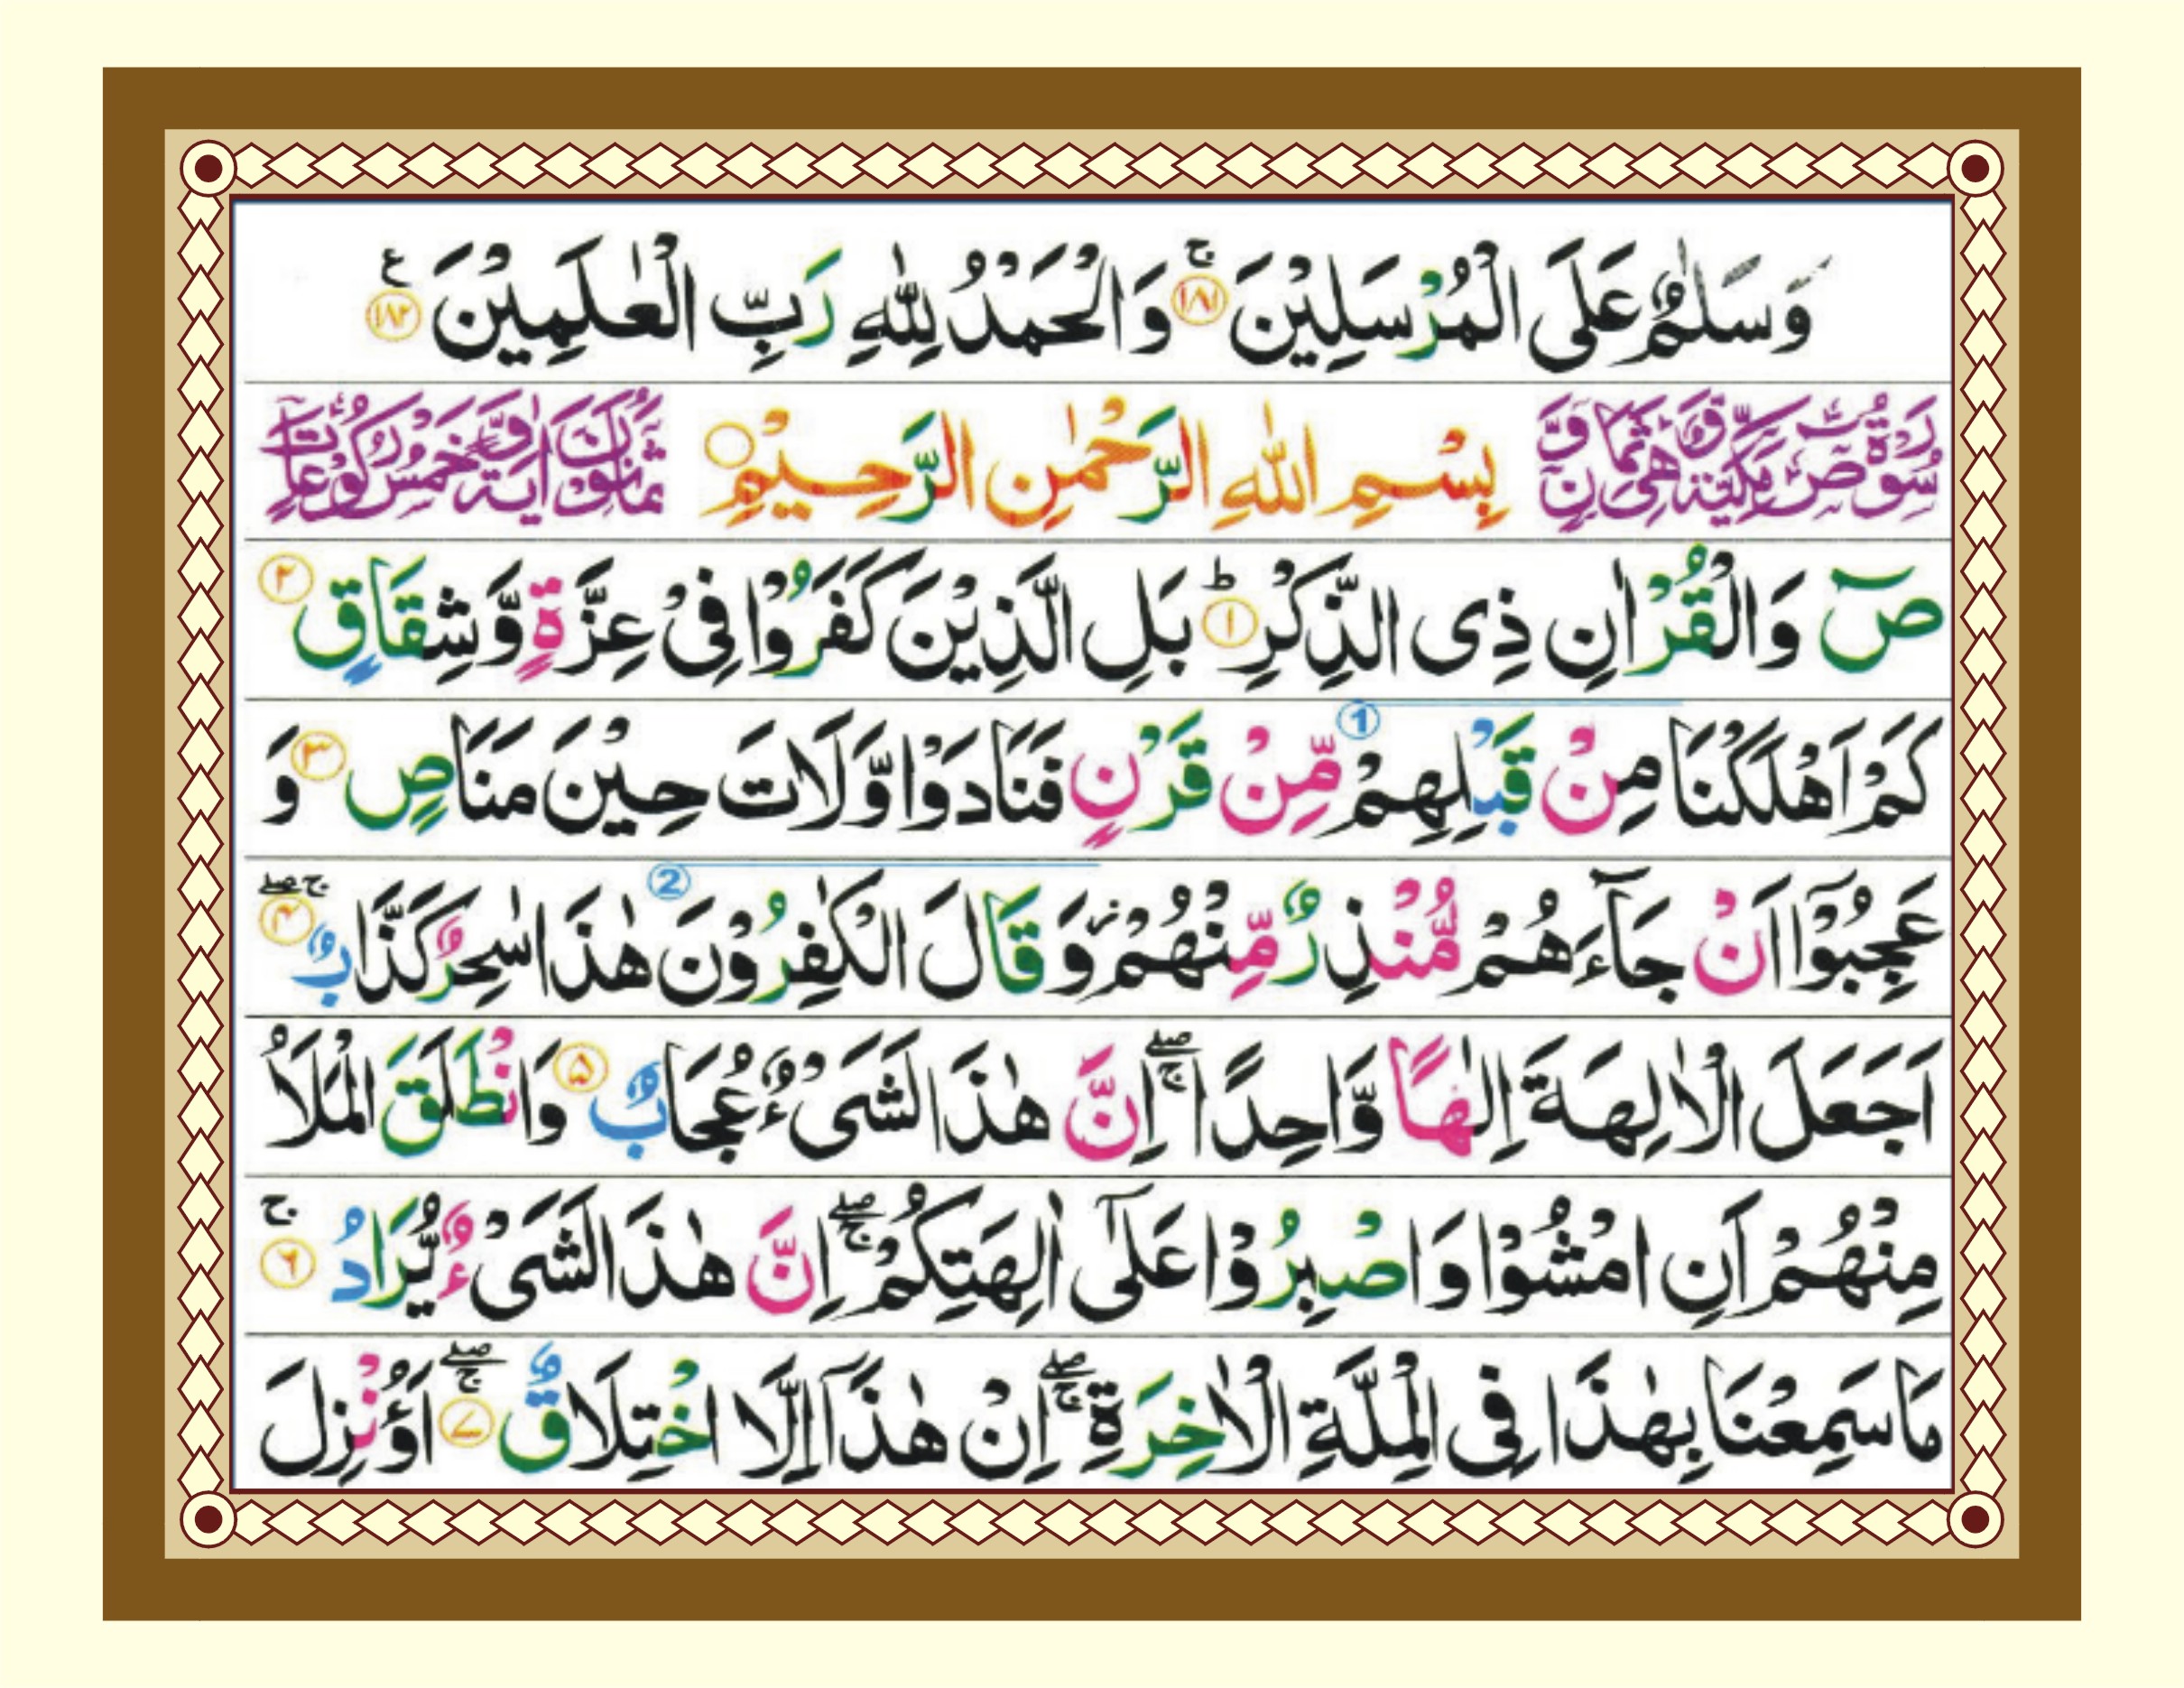 وَسَلٰمٌ عَلَى الْمُرْسَلِيْنَ ۚ ﴿۱۸۱﴾ وَالْحَمْدُ لِلّٰهِ رَبِّ الْعٰلَمِيْنَ ﴿۱۸۲﴾ ع
سُوْرَةُ صٓ مَكِّيَّةٌ وَّهِيَ ثَمَانٌ وَّ بِسْمِ اللّٰهِ الرَّحْمٰنِ الرَّحِيْمِ ۝ ثَمَانُوْنَ اٰيَةً وَّخَمْسُ رُكُوْعَاتٍ
صٓ وَالْقُرْاٰنِ ذِى الذِّكْرِ ؕ ﴿۱﴾ بَلِ الَّذِيْنَ كَفَرُوْا فِىْ عِزَّةٍ وَّشِقَاقٍ ﴿۲﴾
كَمْ اَهْلَكْنَا مِنْ قَبْلِهِمْ ① مِّنْ قَرْنٍ فَنَادَوْا وَّلَاتَ حِيْنَ مَنَاصٍ ﴿۳﴾ وَ
عَجِبُوْۤا اَنْ جَآءَهُمْ مُّنْذِرٌ مِّنْهُمْ ز وَقَالَ الْكٰفِرُوْنَ ② هٰذَا سٰحِرٌ كَذَّابٌ ۚ ۖ ﴿۴﴾
اَجَعَلَ الْاٰلِهَةَ اِلٰهًا وَّاحِدًا ۖ ۚ اِنَّ هٰذَا لَشَىْءٌ عُجَابٌ ﴿۵﴾ وَانْطَلَقَ الْمَلَاُ
مِنْهُمْ اَنِ امْشُوْا وَاصْبِرُوْا عَلٰٓى اٰلِهَتِكُمْ ۖ ۚ اِنَّ هٰذَا لَشَىْءٌ يُّرَادُ ۚ ﴿۶﴾
مَا سَمِعْنَا بِهٰذَا فِى الْمِلَّةِ الْاٰخِرَةِ ۖ ۚ اِنْ هٰذَاۤ اِلَّا اخْتِلَاقٌ ۖ ۚ ﴿۷﴾ اَؤُنْزِلَ